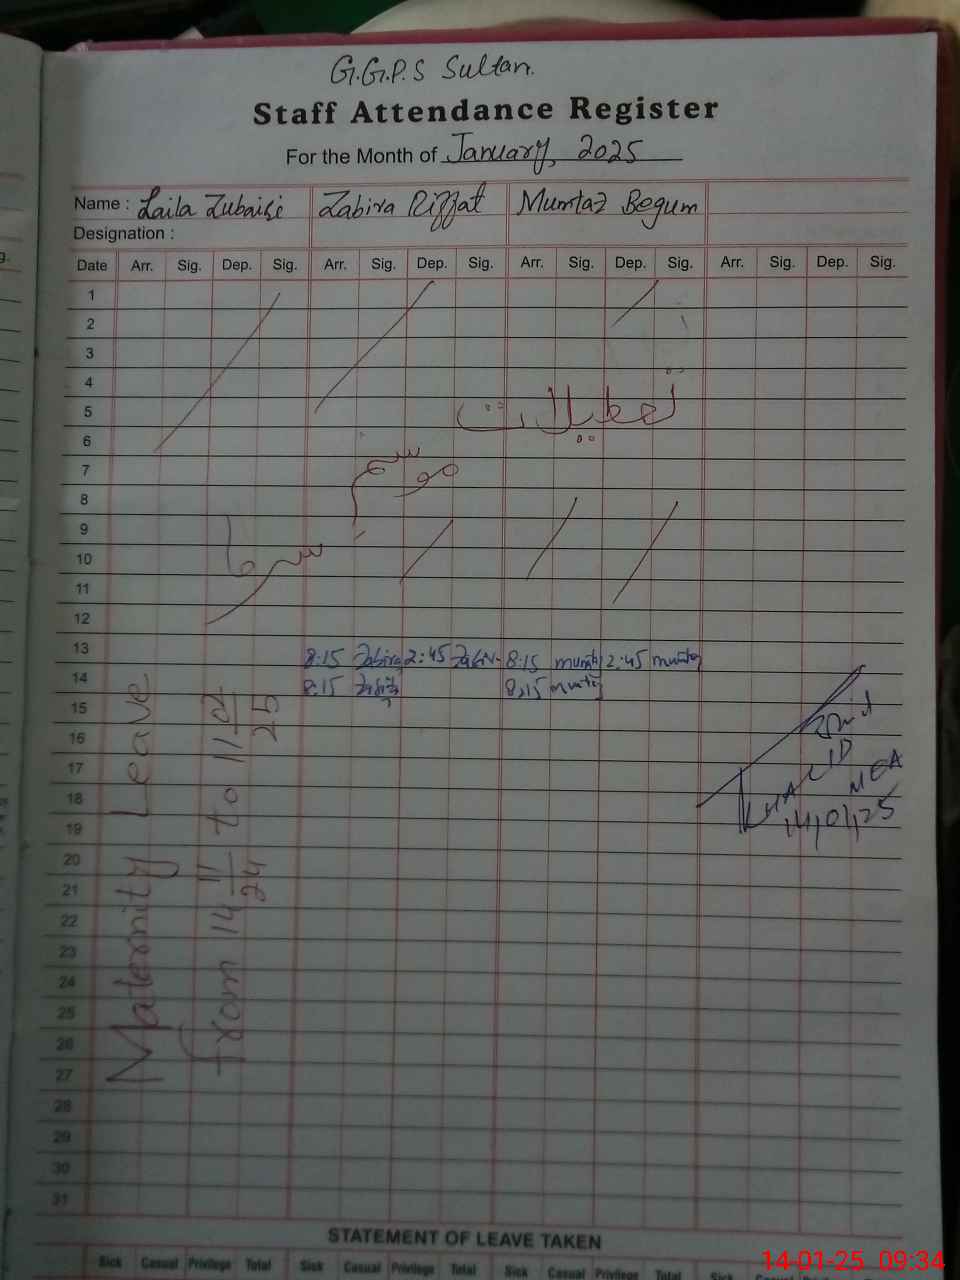 G.G.P.S Sultan.
Staff Attendance Register
For the Month of January, 2025
Name : Laila Zubairi Zabira Riffat Mumtaz Begum
Designation :
Date Arr. Sig. Dep. Sig. Arr. Sig. Dep. Sig. Arr. Sig. Dep. Sig. Arr. Sig. Dep. Sig.
1
2
3
4
5
تعطیلات
6
7
موسم
8
9
10
سرما
11
12
13 8:15 Zabira 2:45 8:15 mumtaz 2:45 mumtaz
14 8:15 8:15
15
16
17
18
19
20
21
22
23
24
25
26
27
28
29
30
31
Maternity Leave
from 14 11/24 to 11 02/25
KHALID
MEA
14,01,25
STATEMENT OF LEAVE TAKEN
Sick Casual Privilege Total Sick Casual Privilege Total Sick Casual Privilege Total Sick
14-01-25 09:34